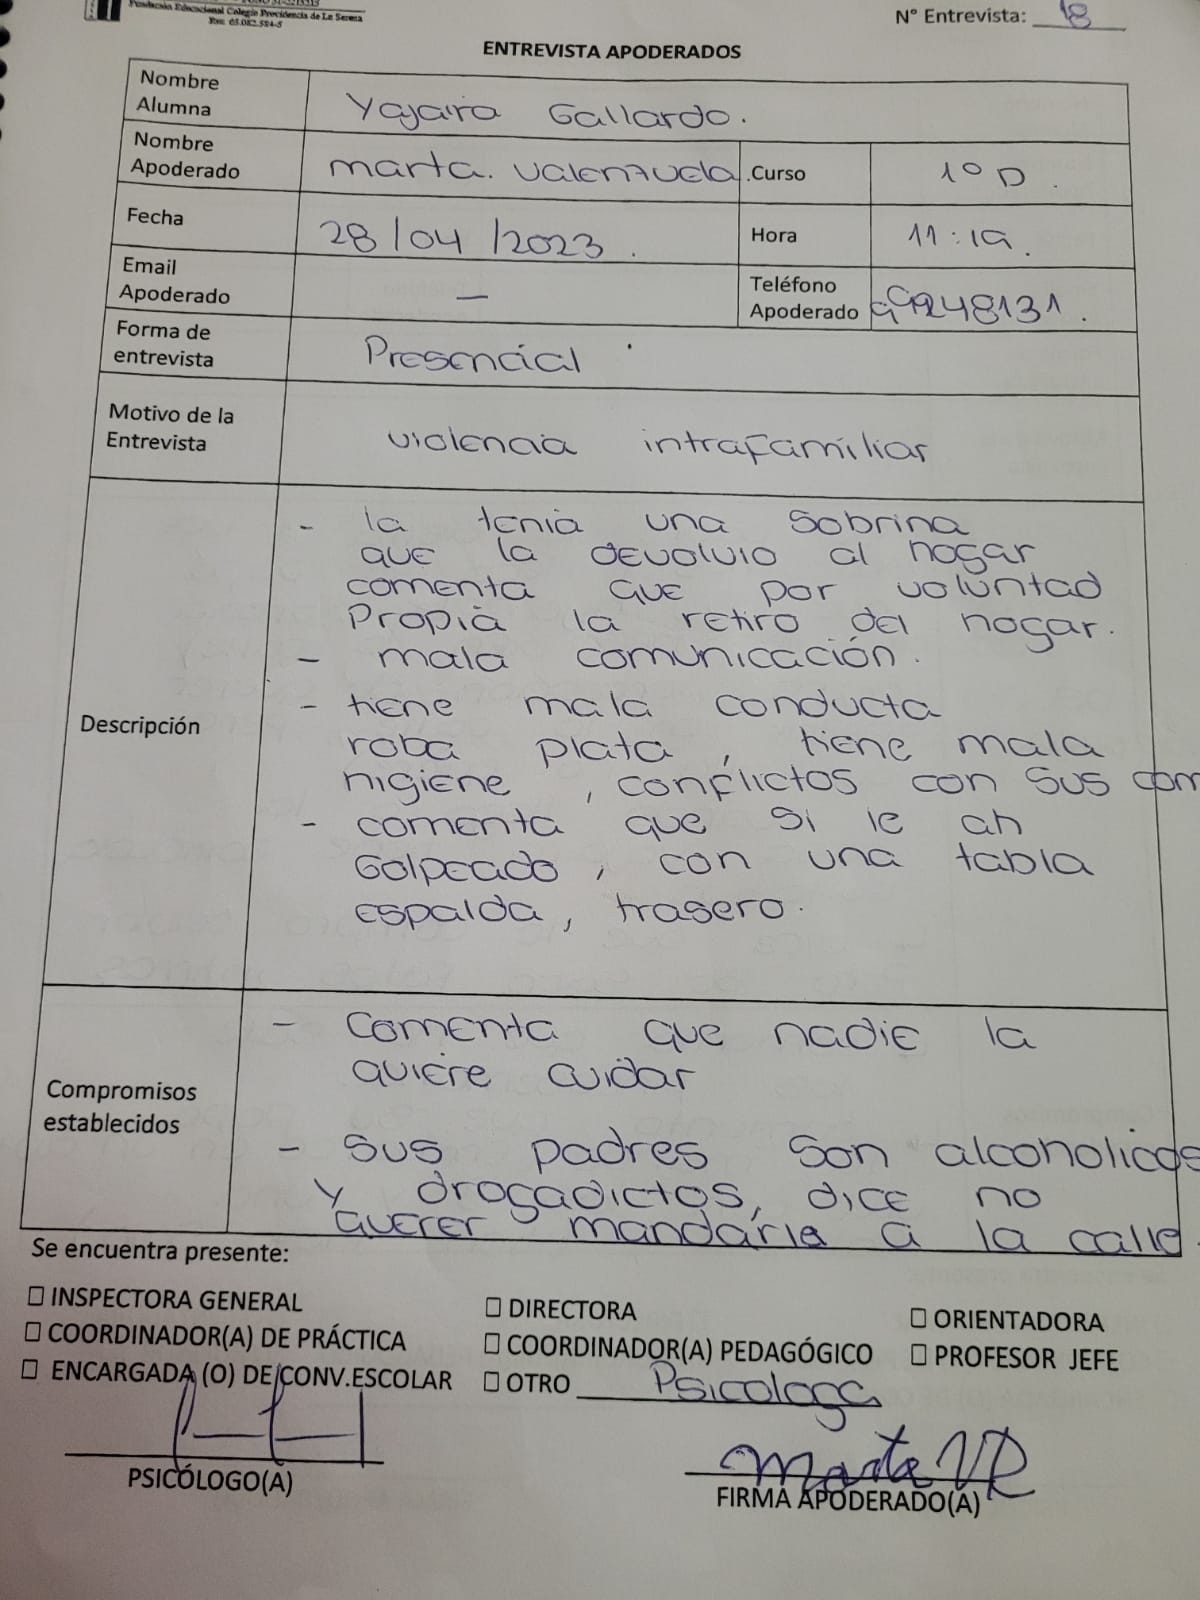 Fundación Educacional Colegio Providencia de La Serena
Rut. 65.082.584-5
N° Entrevista: 18
ENTREVISTA APODERADOS
Nombre Alumna Yajaira Gallardo.
Nombre Apoderado marta. valenzuela. Curso 1° D.
Fecha 28/04/2023. Hora 11:19.
Email Apoderado - Teléfono Apoderado 99248131.
Forma de entrevista Presencial
Motivo de la Entrevista violencia intrafamiliar
Descripción
- la tenia una sobrina
que la devolvio al hogar
comenta que por voluntad
propia la retiro del hogar.
- mala comunicación.
- tiene mala conducta
roba plata, tiene mala
higiene, conflictos con sus com
- comenta que si le ah
golpeado, con una tabla
espalda, trasero.
Compromisos establecidos
- comenta que nadie la
quiere cuidar
- sus padres son alcoholicos
y drogadictos, dice no
querer mandarla a la calle.
Se encuentra presente:
☐ INSPECTORA GENERAL ☐ DIRECTORA ☐ ORIENTADORA
☐ COORDINADOR(A) DE PRÁCTICA ☐ COORDINADOR(A) PEDAGÓGICO ☐ PROFESOR JEFE
☐ ENCARGADA (O) DE CONV.ESCOLAR ☐ OTRO Psicologa
Marta VR
PSICÓLOGO(A) FIRMA APODERADO(A)